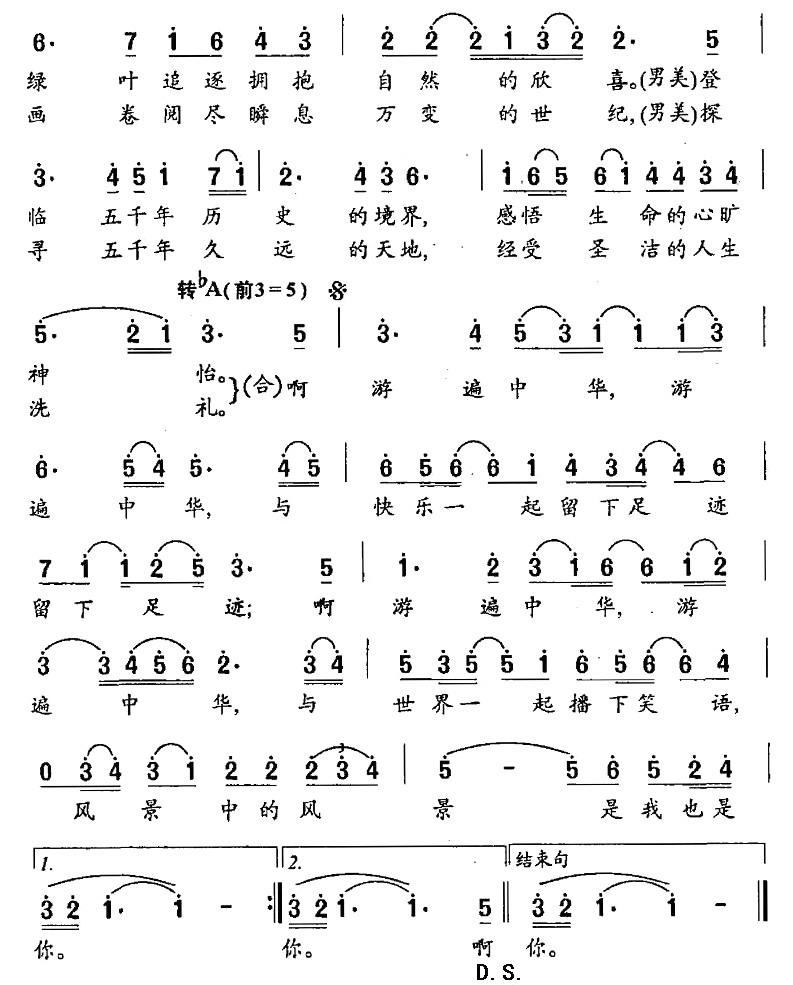 6· 7 1 6 4 3 | 2 2 2 1 3 2 2· 5 |
绿 叶 追 逐 拥 抱 自 然 的 欣 喜。(男美)登
画 卷 阅 尽 瞬 息 万 变 的 世 纪,(男美)探
3· 4 5 1 7 1 | 2· 4 3 6· | 1 6 5 6 1 4 4 3 4 |
临 五 千 年 历 史 的 境 界, 感 悟 生 命 的 心 旷
寻 五 千 年 久 远 的 天 地, 经 受 圣 洁 的 人 生
转♭A(前3=5) 𝄋
5· 2 1 3· 5 | 3· 4 5 3 1 1 1 3 |
神 怡。}(合)啊 游 遍 中 华, 游
洗 礼。
6· 5 4 5· 4 5 | 6 5 6 6 1 4 3 4 4 6 |
遍 中 华, 与 快 乐 一 起 留 下 足 迹
7 1 1 2 5 3· 5 | 1· 2 3 1 6 6 1 2 |
留 下 足 迹; 啊 游 遍 中 华, 游
3 3 4 5 6 2· 3 4 | 5 3 5 5 1 6 5 6 6 4 |
遍 中 华, 与 世 界 一 起 播 下 笑 语,
0 3 4 3 1 2 2 2 3 4 3 | 5 - 5 6 5 2 4 |
风 景 中 的 风 景 是 我 也 是
1. 2. 结束句
3 2 1· 1 - :‖ 3 2 1· 1· 5 ‖ 3 2 1· 1 - ‖
你。 你。 啊 你。
D.S.